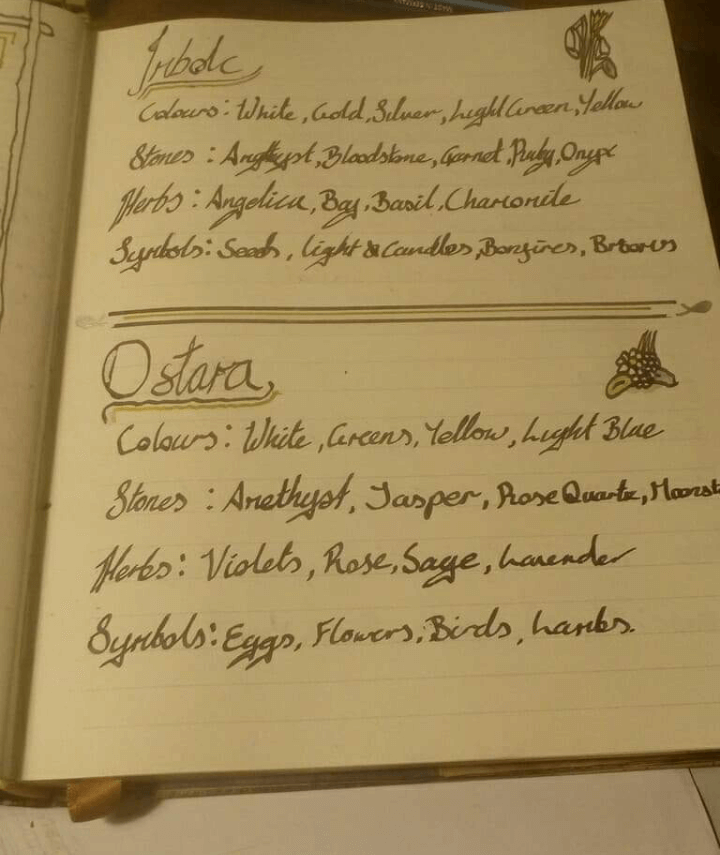 Imbolc
Colours: White, Gold, Silver, Light Green, Yellow
Stones : Amethyst, Bloodstone, Garnet, Ruby, Onyx
Herbs : Angelica, Bay, Basil, Chamomile
Symbols: Seeds, Light & Candles, Bonfires,
Ostara,
Colours: White, Greens, Yellow, Light Blue
Stones : Amethyst, Jasper, Rose Quartz, Moonst
Herbs: Violets, Rose, Sage, Lavender
Symbols: Eggs, Flowers, Birds, Lambs.